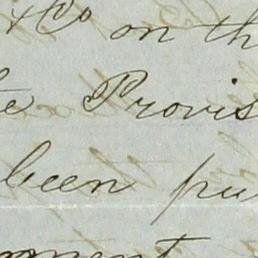 & Co on th
te Provis
been pu
ment